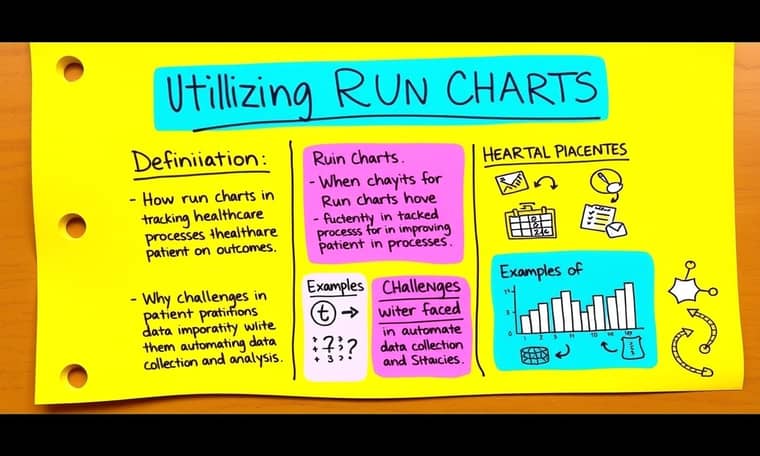 Utillizing RUN CHARTS
Definiiation:
- How run charts in
tracking healthcare
processes thealthare
patient on outcomes.
- Why challenges in
patient pratifions
data imporatity wlite
them automating data
collection and analysis.
Ruin charts.
- When chayits for
Run charts hove
- fuctently in tacked
processs for in improving
patient in processes.
Examples
t
? ?
CHallenges
witer faced
in automate
data collection
and Sitaicies.
HEARTAL PIACENTES
Examples of